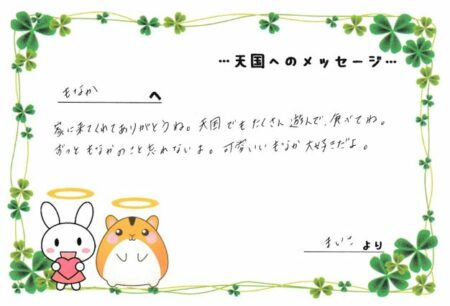 …天国へのメッセージ…
もなか へ
家に来てくれてありがとうね。天国でもたくさん遊んで、食べてね。
ずっともなかのこと忘れないよ。可愛いいもなか大好きだよ。
まいこ より